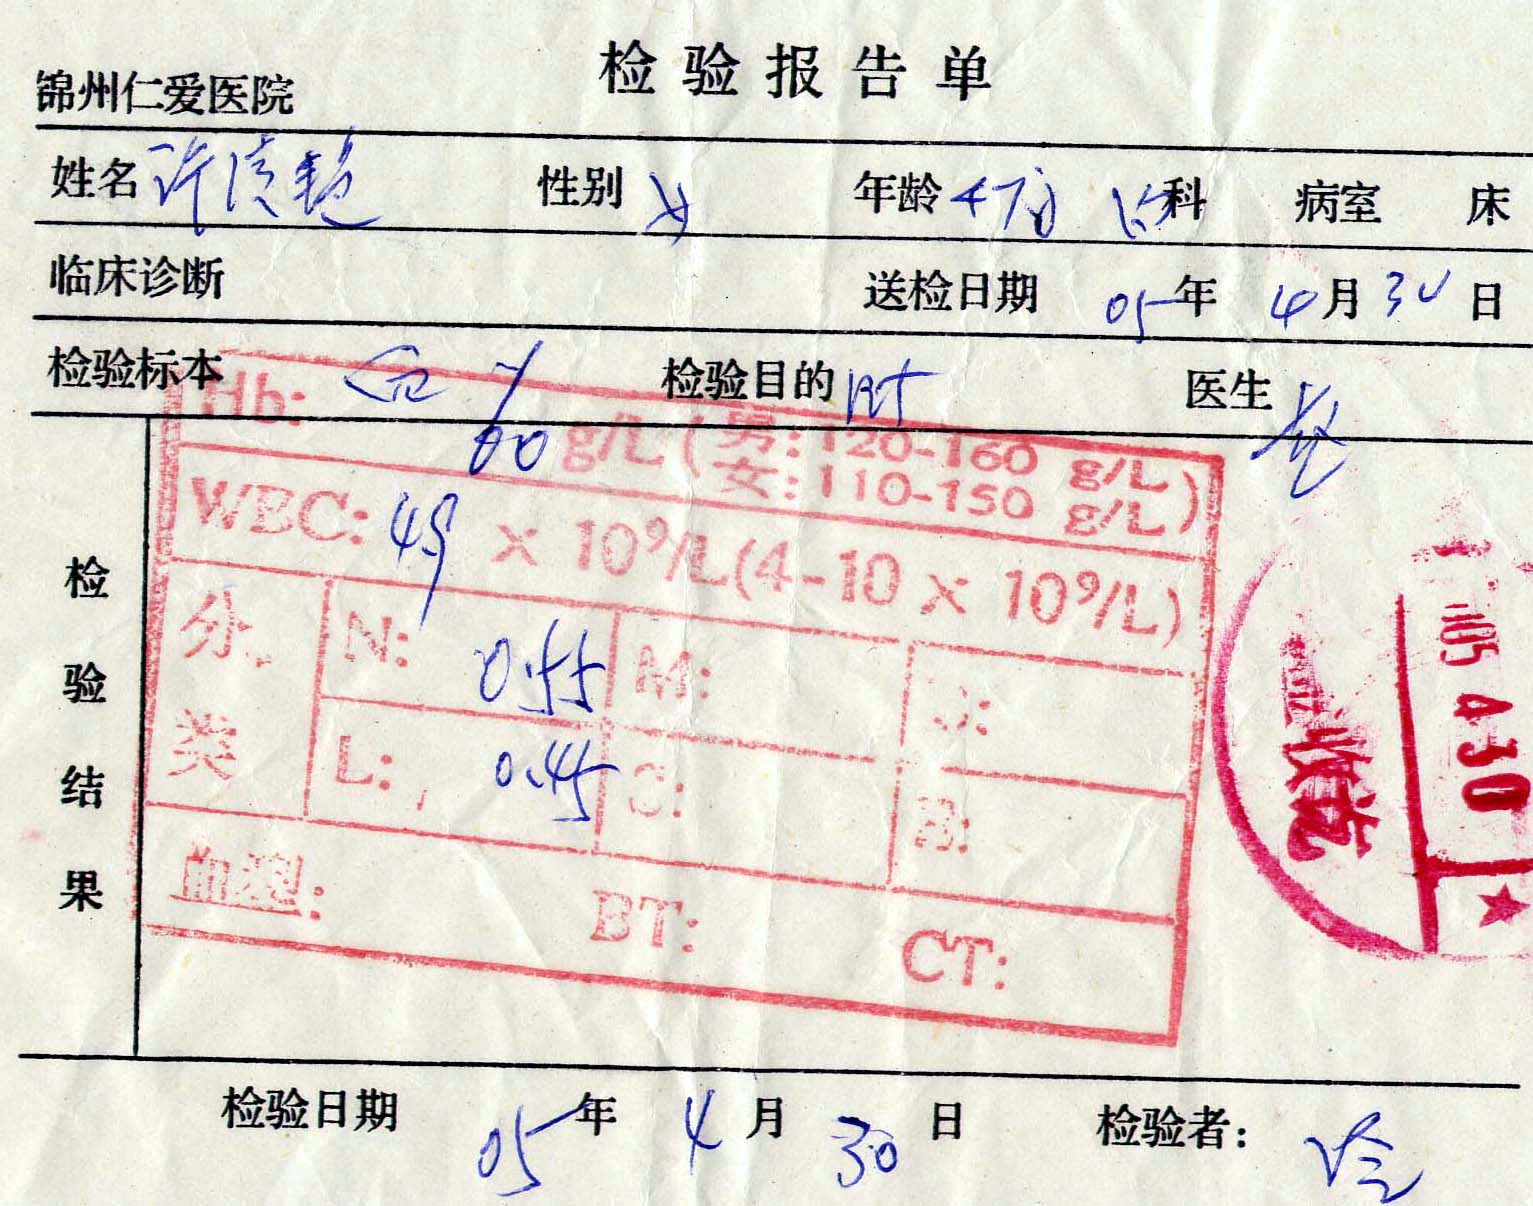 检验报告单
锦州仁爱医院
姓名 许 性别 女 年龄 47岁 科 病室 床
临床诊断 送检日期 05年 4月 30日
检验标本 检验目的 医生
Hb: g/L (男:120-160 g/L
女:110-150 g/L)
WBC: 49 × 10⁹/L(4-10 × 10⁹/L)
分类 N: 0.55 M:
L: 0.45
血型: BT: CT:
检验结果
05 4 30
检验日期 05年 4月 30日 检验者: